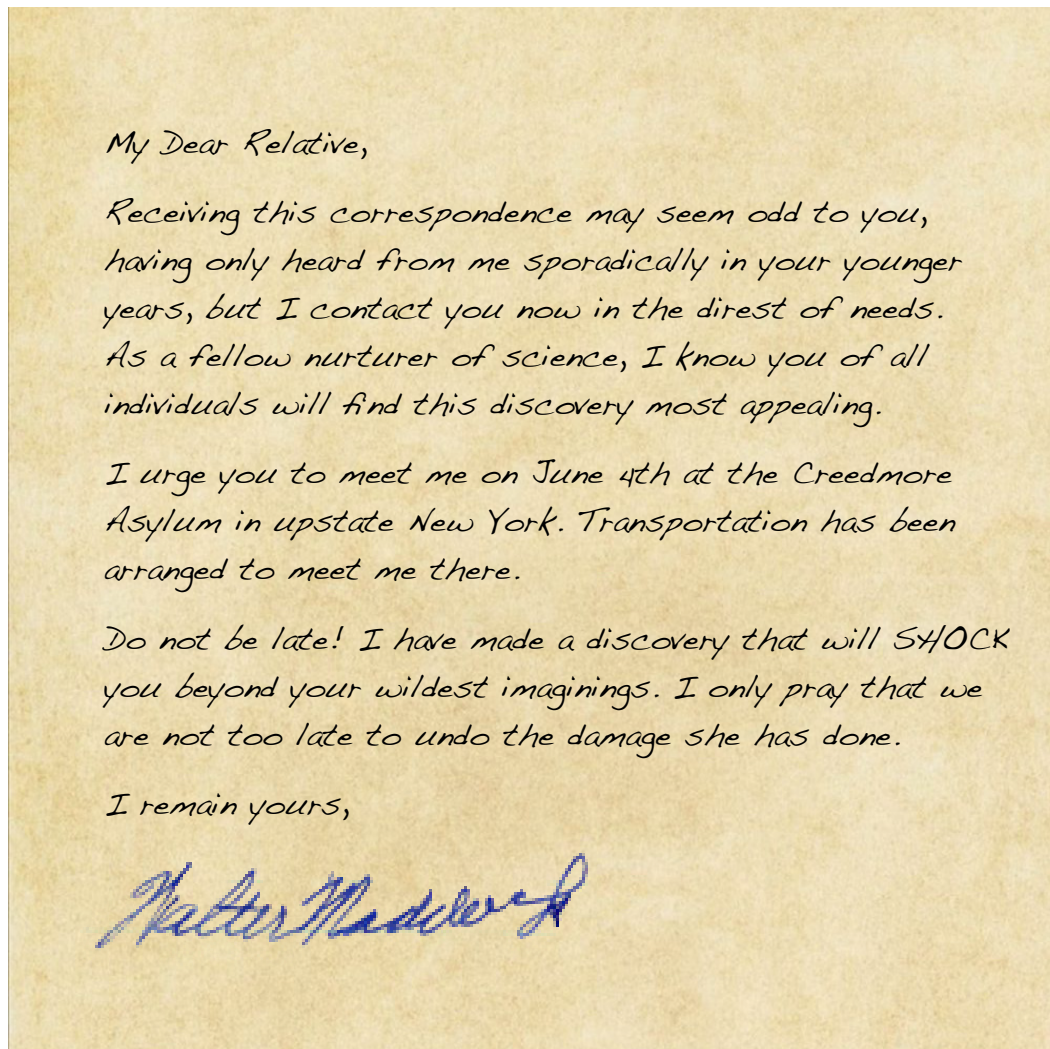 My Dear Relative,
Receiving this correspondence may seem odd to you,
having only heard from me sporadically in your younger
years, but I contact you now in the direst of needs.
As a fellow nurturer of science, I know you of all
individuals will find this discovery most appealing.
I urge you to meet me on June 4th at the Creedmore
Asylum in upstate New York. Transportation has been
arranged to meet me there.
Do not be late! I have made a discovery that will SHOCK
you beyond your wildest imaginings. I only pray that we
are not too late to undo the damage she has done.
I remain yours,
Walter